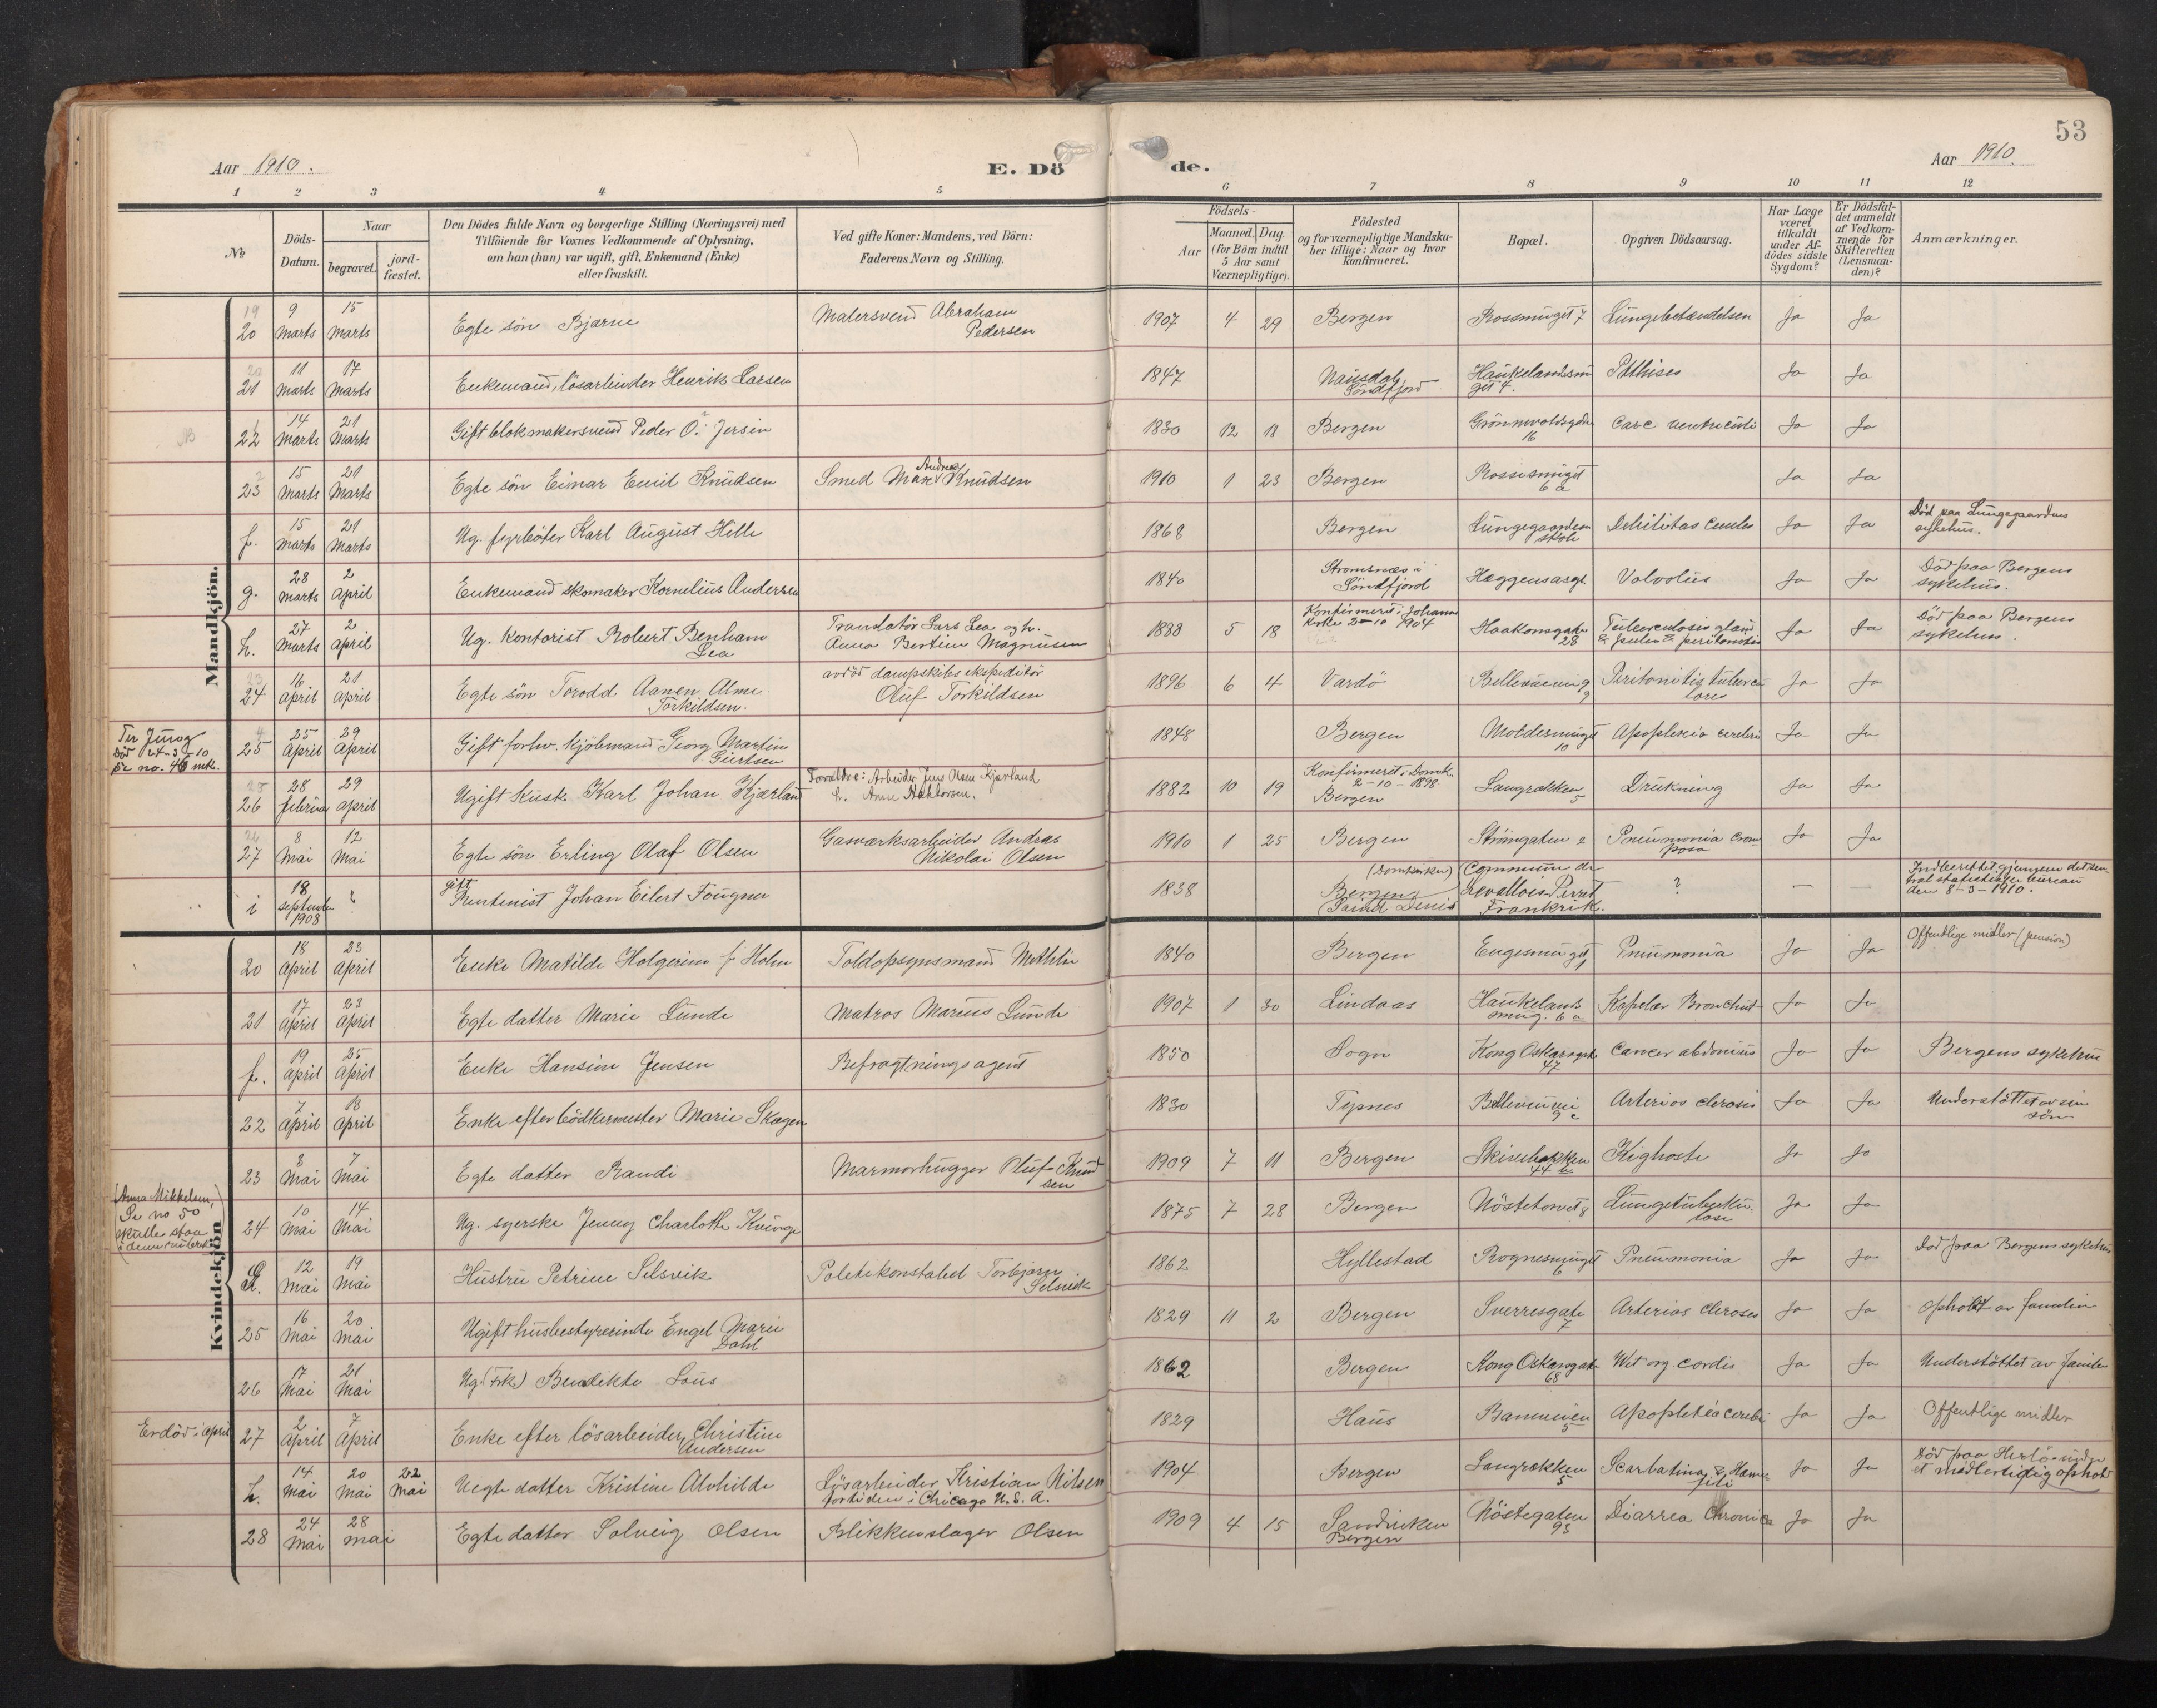 53
Aar 1910.
E. Dö
de.
Aar 1910.
1 2 3 4 5 6 7 8 9 10 11 12
No
Döds-
Datum.
Naar
begravet.
jord-
fæstet.
Den Dödes fulde Navn og borgerlige Stilling (Næringsvei) med
Tilföiende for Voxnes Vedkommende af Oplysning,
om han (hun) var ugift, gift, Enkemand (Enke)
eller fraskilt.
Ved gifte Koner: Mandens, ved Börn:
Faderens Navn og Stilling.
Födsels-
Aar
Maaned. Dag.
(for Börn indtil
5 Aar samt
Værnepligtige).
Födested
og for værnepligtige Mandska-
ber tillige: Naar og hvor
konfirmeret.
Bopæl.
Opgiven Dödsaarsag.
Har Læge
været
tilkaldt
under Af-
dödes sidste
Sygdom?
Er Dödsfal-
det anmeldt
af Vedkom-
mende for
Skifteretten
(Lensman-
den)?
Anmærkninger.
Mandkjön.
19
20 9 Marts 15 Marts Egte sön Bjarne Malersvend Abraham
Pedersen 1907 4 29 Bergen Rossmuget 7 Lungebetændelsen Ja Ja
21 11 Marts 17 Marts Enkemand, lösarbeider Henrik Larsen 1847 Nausdal
Söndfjord Haukelandsmu
get 4. Phthises Ja Ja
22 14 Marts 21 Marts Gift blokmakersvend Peder O. Jersin 1830 12 18 Bergen
16 Carc ventriculi Ja Ja
23 15 Marts 21 Marts Egte sön Einar Emil Knudsen Smed Max Andreas Knudsen 1910 1 23 Bergen Rossesmuget
6 a Ja Ja
f. 15 Marts 21 Marts Ug. fyrböter Karl August Hille 1868 Bergen Lungegaardens
Debilitas Ja Ja Död paa Lungegaardens
sykehus.
g. 28 Marts 2 April Enkemand skomaker Kornelius Andersen 1840 Stromsnes i
Söndfjord Volvolus Ja Ja Död paa Bergens
sykehus.
h. 27 Marts 2 April Ug. kontorist Robert Benham
Lea Translatör Lars Lea og h.
Anna Bertine Magnussen 1888 5 18 Konfirmeret i Johannes
kirke 2-10 1904 Haakonsgate
28 Tuberculosis
Ja Ja Död paa Bergens
sykehus.
24 16 April 21 April Egte sön Torodd Aanen Alme
Torkildsen. avdöd dampskibsekspeditör
Oluf Torkildsen 1896 6 4 Vardö Bellevueveig
9 Peritonitis tubercu
lores Ja Ja
død 24-3-10
se no. 46 mk.
25 25 April 29 April Gift forhv. kjöbmand Georg Martin
Giertsen 1848 Bergen
10 Apoplexia cerebri Ja Ja
26 28 februar 29 april Ugift Kusk Karl Johan Kjærland Forældre: Arbeider Jens Olsen Kjærland
h. Anne 1882 10 19 Konfirmeret i Domk.
2-10-1898
Bergen Langrækken
5 Drukning Ja Ja
27 8 Mai 12 Mai Egte sön Erling Olaf Olsen Gasværksarbeider Andreas
Nikolai Olsen 1910 1 25 Bergen Strangaten 2 Pneumonia
Ja Ja
i 18 september 1908 ? gift
Rentenist Johan Eilert Fougner 1838 (Domkirken)
Bergen
Saint Denis Commune de
Levallois-Perret
Frankrik. ? — — Indberettet gjennem det cen
tral statistiske bureau
den 8-3-1910.
Kvindekjön
20 18 April 23 April Enke Matilde Holgerine f. Holm Toldopsynsmand Methlie 1840 Bergen Engesmuget
1 Pneumonia Ja Ja Offentlige midler (pension)
21 17 April 23 April Egte datter Marie Lunde Matros Marius Lunde 1907 1 30 Lindaas Haukelands
smug. 6 a Kapelær Bronchit Ja Ja
f. 19 April 25 April Enke Hansine Jensen Befragtningsagent 1850 Sogn Kong Oskarsgate
47 Cancer abdominis Ja Ja Bergens sykehus
22 7 April 13 April Enke efter bödkermester Marie Skagen 1830 Bellevuevei
9 c Arterios clerosis Ja Ja Understöttet av sin
sön
23 3 Mai 7 Mai Egte datter Randi Marmorhugger Oluf Knud
sen 1909 7 11 Bergen
44 Kighoste Ja Ja
(Anna Mikkelsen,
Se no 50
skulle staa
i denne rubrik)
24 10 Mai 14 Mai Ug. syerske Jenny Charlotte Kvinge 1875 7 28 Bergen Nöstetorvet 8 Lungetuberku
lose Ja Ja
g. 12 Mai 19 Mai Hustru Petrine Selsvik Politikonstabel Torbjørn
Selsvik 1862 Hyllestad Rognesmuget
6 Pneumonia Ja Ja Död paa Bergens sykehus
25 16 Mai 20 Mai Ugift husbestyrerinde Engel Marie
Dahl 1829 11 2 Bergen Sverresgate
7 Arterios cleroses Ja Ja Opholdt av familien
26 17 Mai 21 Mai Ug. (Frk.) Bendikte Lous 1862 Bergen Kong Oskarsgate
68 Vit org. cordis Ja Ja Understöttet av familie
Er död i april
27 2 April 7 April Enke efter lösarbeider Christine
Andersen 1829 Haus
5 Apoplekia cerebri Ja Ja Offentlige midler
h. 14 Mai 20 Mai 22 Mai Uegte datter Kristine Alvhilde Lösarbeider Kristian Nilsen
for tiden i Chicago U.S.A. 1904 Bergen Langrækken
5 Scarlatina
Ja Ja Död paa Herlö under
et midlertidig ophold
28 24 Mai 28 mai Egte datter Solveig Olsen Blikkenslager Olsen 1909 4 15 Sandviken
Bergen Nöstegaten
93 Diarrea Chronica Ja Ja